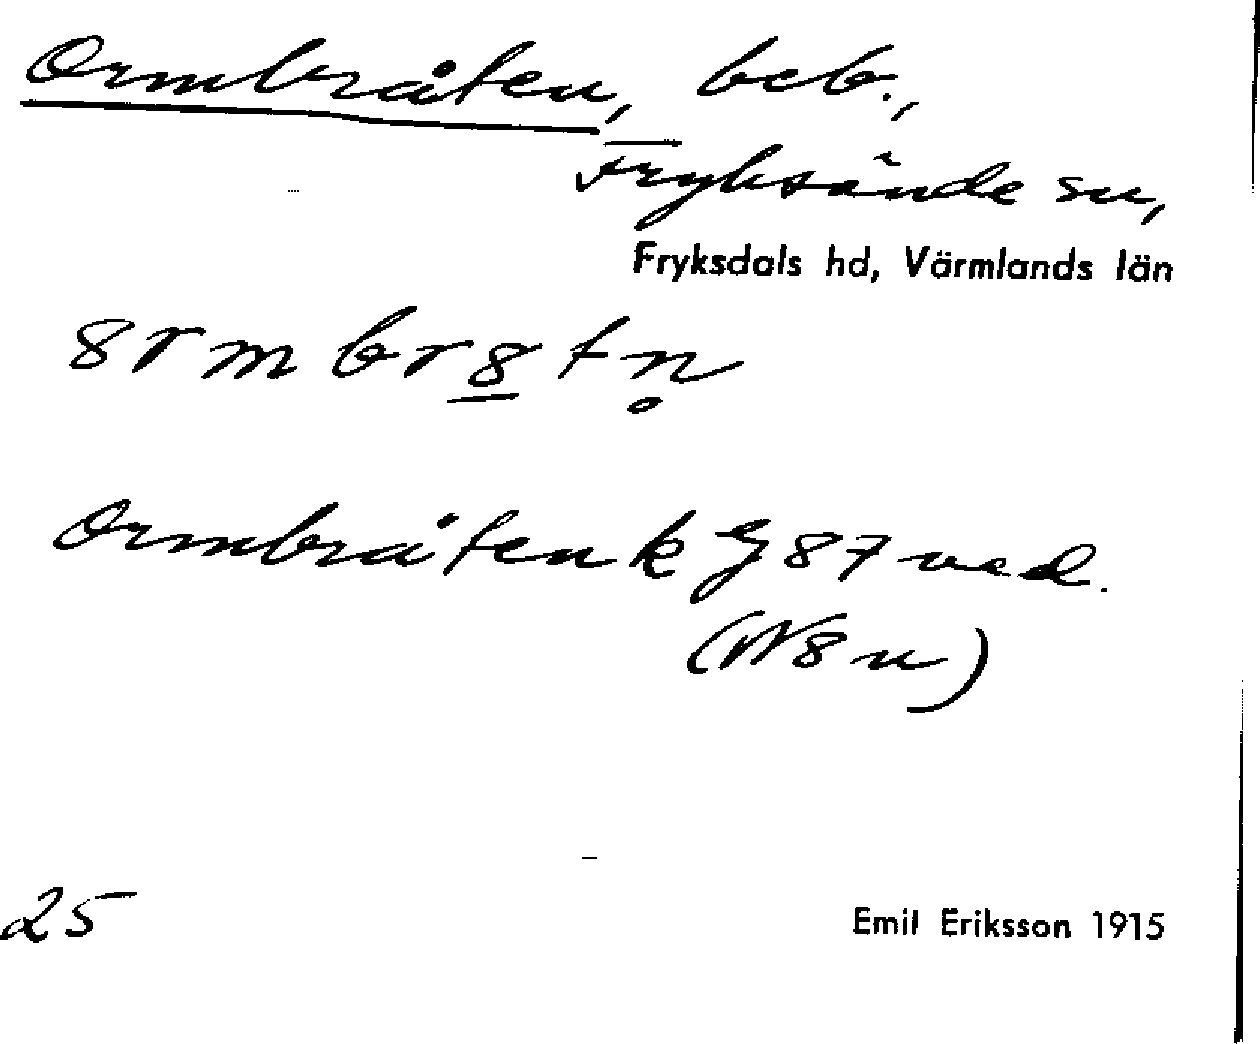 Ormbråten, beb.,
Fryksände sn,
Fryksdals hd, Värmlands län
8rmbr8tn̥
Ormbråten k G 87 ved.
(W8n)
25
Emil Eriksson 1915